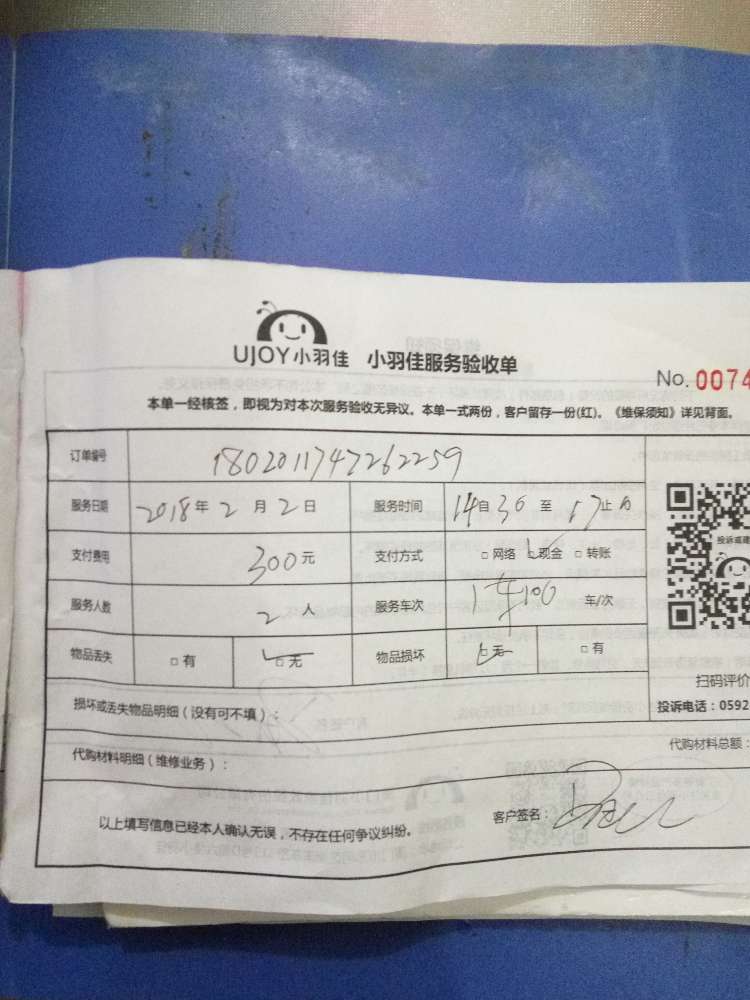 UJOY小羽佳 小羽佳服务验收单
No. 0074
本单一经核签，即视为对本次服务验收无异议。本单一式两份，客户留存一份(红)。《维保须知》详见背面。
订单编号 1802011747262259
服务日期 2018年 2月 2日 服务时间 14自30至17止
支付费用 300元 支付方式 □网络 □现金 □转账
投诉或建
服务人数 2人 服务车次 车/次
物品丢失 □有 □无 物品损坏 □无 □有
扫码评价
损坏或丢失物品明细（没有可不填）： 投诉电话：0592
代购材料明细（维修业务）： 代购材料总额：
以上填写信息已经本人确认无误，不存在任何争议纠纷。 客户签名：